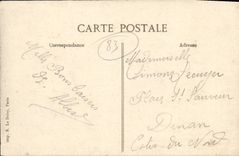 CARTE POSTALE
Correspondance
Adresse
83
Mille Bons Baisers
Mademoiselle
Simone
Place St Sauveur
Dinan
Cotes du Nord